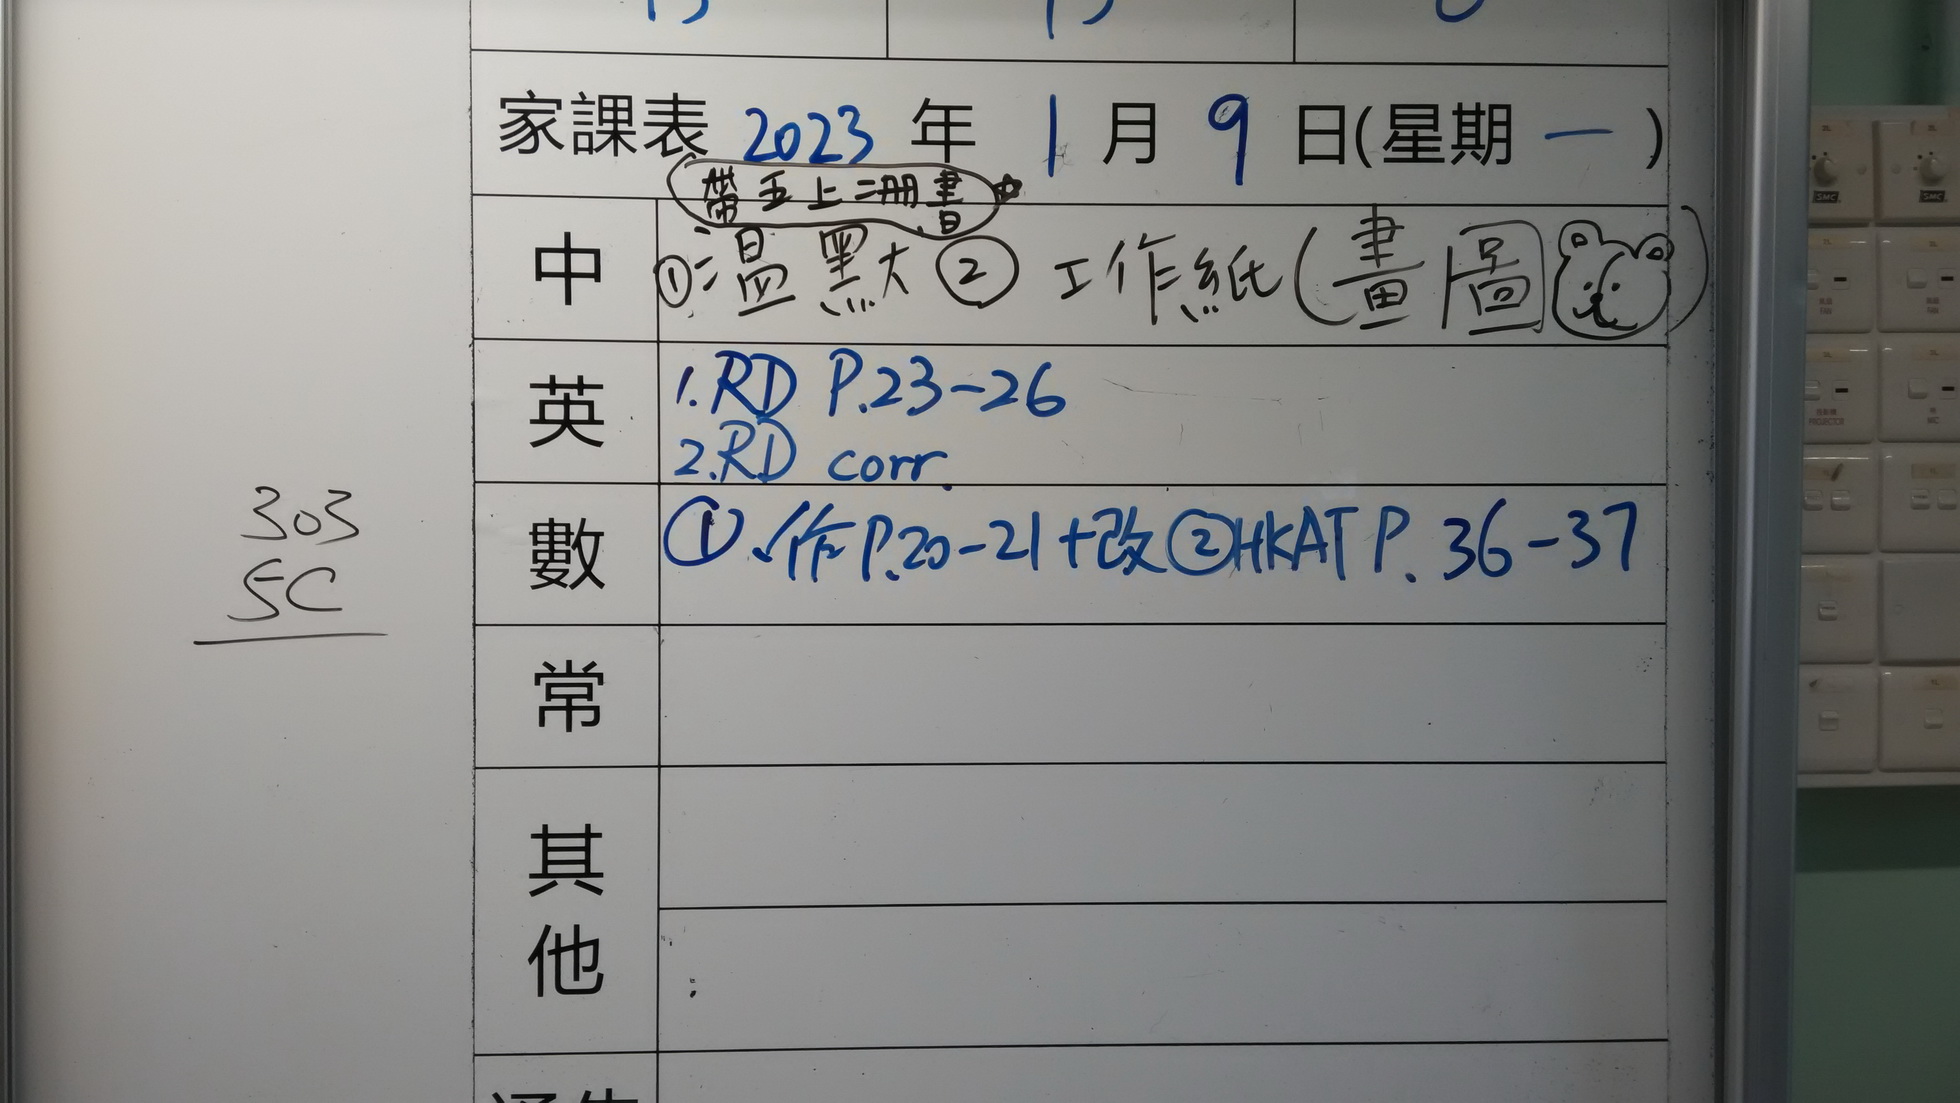 家課表 2023 年 1 月 9 日(星期 一 )
帶五上二冊書
中 ①溫默 ② 工作紙(畫圖)
英 1.RD P.23-26
2.RD corr.
303
5C
數 ①作P.20-21+改 ②HKAT P. 36-37
常
其他